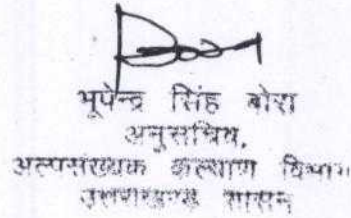 भूपेन्द्र सिंह बोरा
अनुसचिव,
अल्पसंख्यक कल्याण विभाग
उत्तराखण्ड शासन